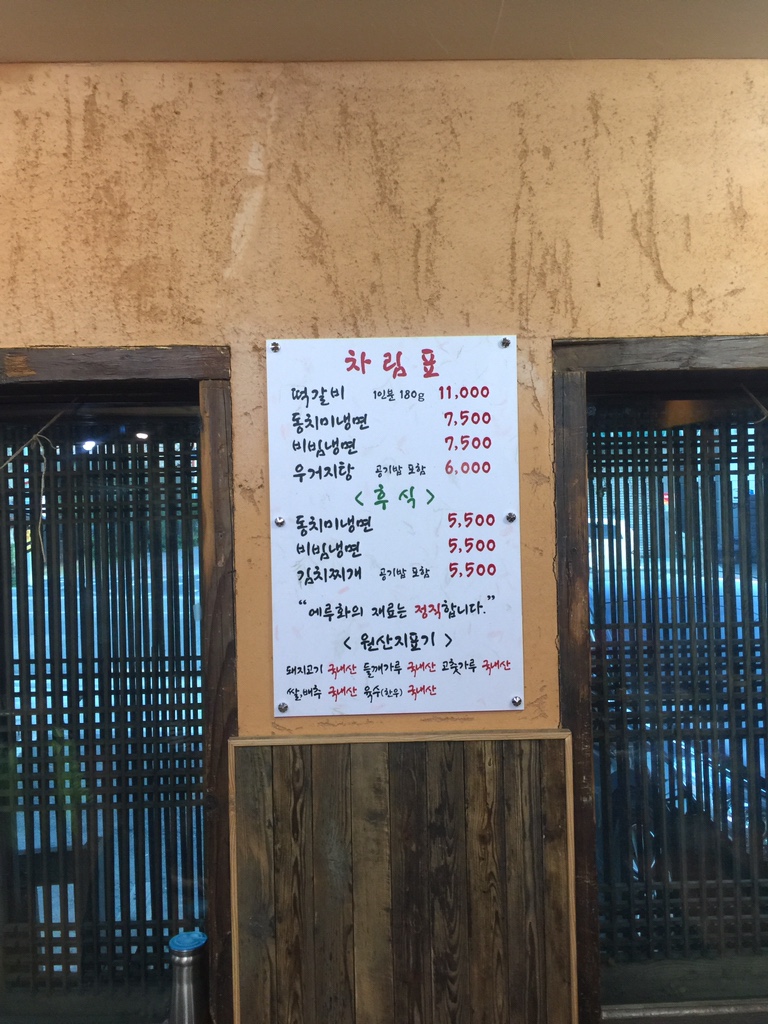 차림표
떡갈비 1인분 180g 11,000
동치미냉면 7,500
비빔냉면 7,500
우거지탕 공기밥 포함 6,000
<후식>
동치미냉면 5,500
비빔냉면 5,500
김치찌개 공기밥 포함 5,500
“에루화의 재료는 정직합니다.”
<원산지표기>
돼지고기 국내산 들깨가루 국내산 고춧가루 국내산
쌀,배추 국내산 육수(한우) 국내산